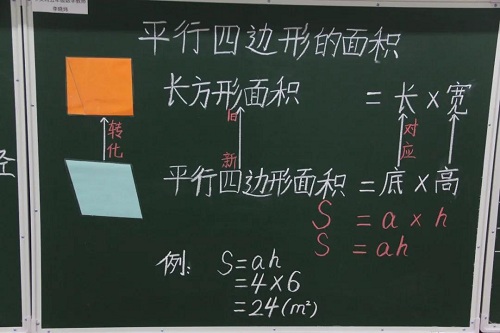 平行四边形的面积
长方形面积 = 长 × 宽
转化 旧 新 对应
平行四边形面积 = 底 × 高
S = a × h
S = ah
例: S = ah
= 4 × 6
= 24 (m²)